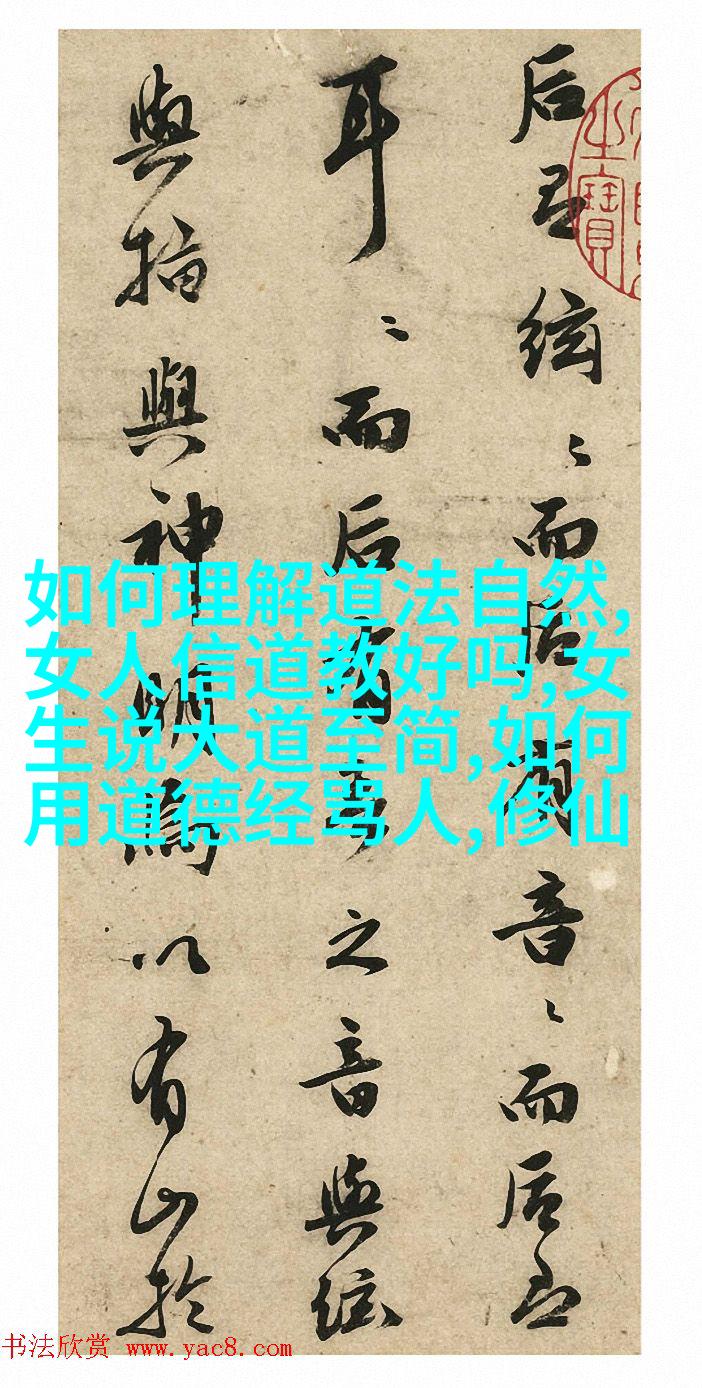 后 絃〻而后有音〻而后
耳〻而后有 之音與絃
與指與神明為以有山於
之寶
如何理解道法自然,
女人信道教好吗,女
生说大道至简,如何
用道德经骂人,修仙
书法欣赏 www.yac8.com